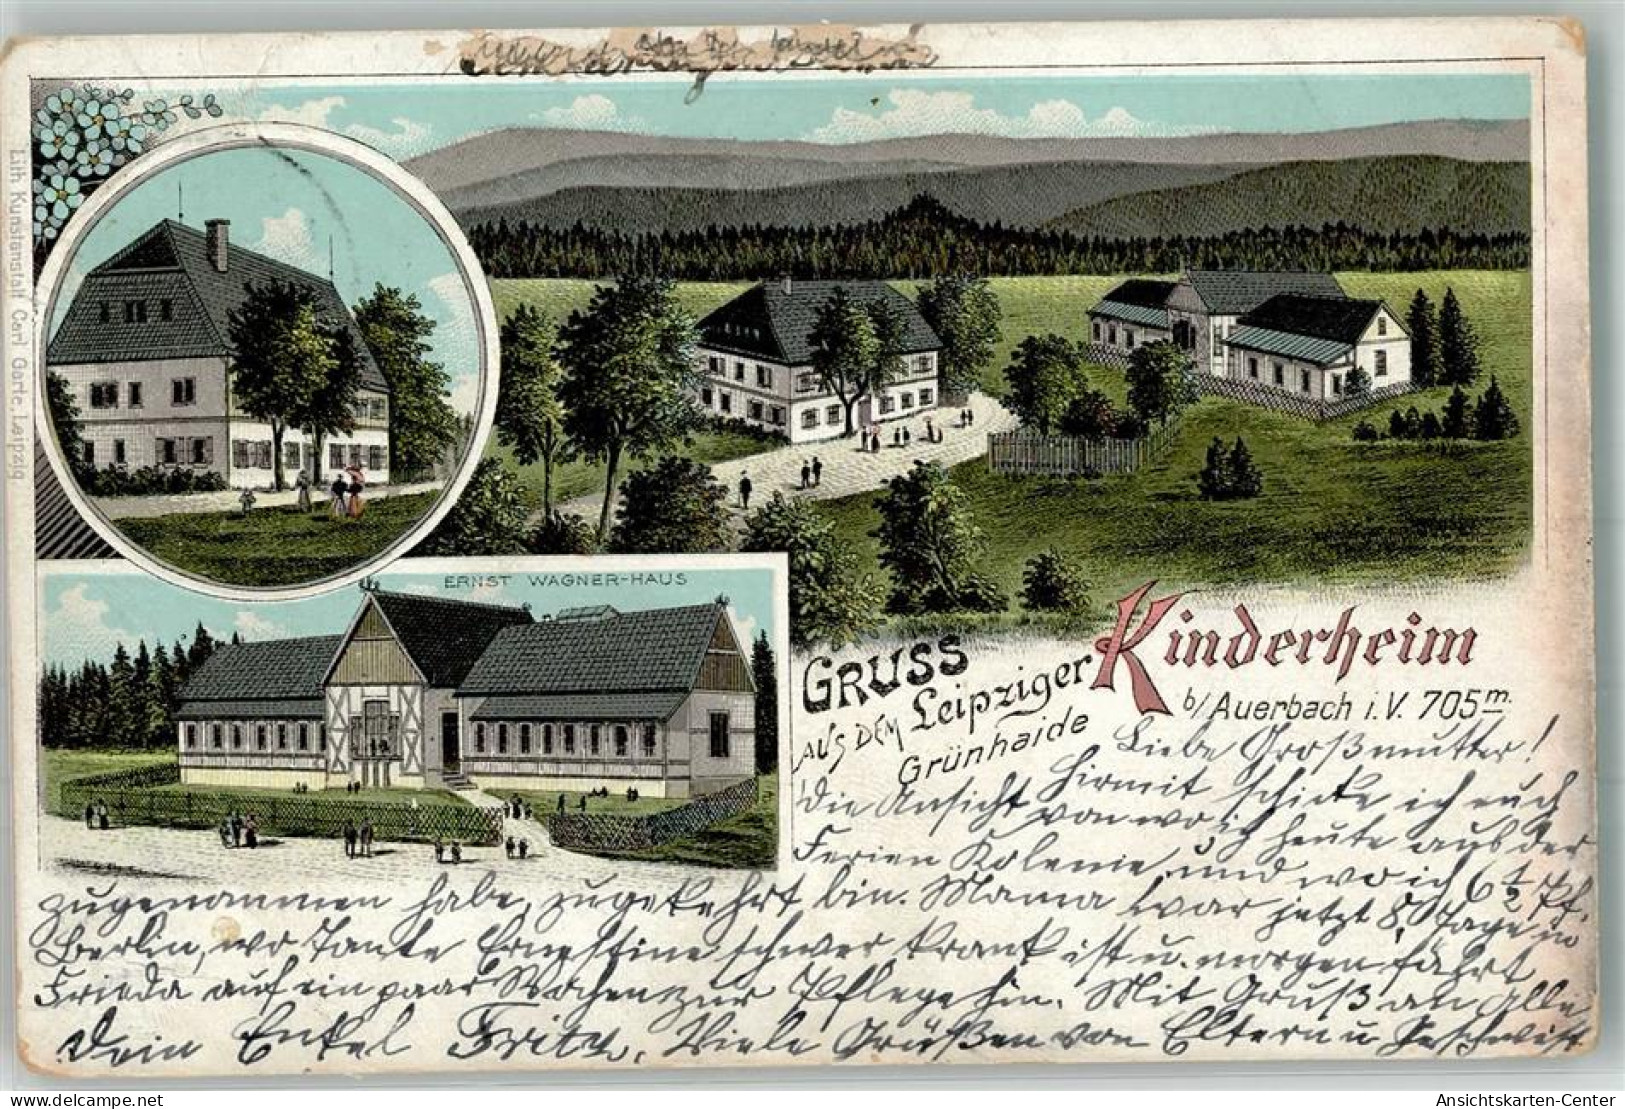 Lith. Kunstanstalt Carl Garte, Leipzig.
ERNST WAGNER-HAUS
GRUSS
AUS DEM Leipziger Kinderheim
Grünhaide
b/ Auerbach i. V. 705 m.
Liebe Großmutter!
Hirmit schicke ich euch
die Ansicht von wo ich heute aus der
Ferien Kolonie und wo ich 6½ Pf.
zugenommen habe, zugekehrt bin. Mama war jetzt 8 Tage in
Berlin, wo Tante Ernestine schwer krank ist u. morgen fährt
Frieda auf ein paar Wochen zur Pflege hin. Mit Gruß an alle
Dein Enkel Fritz. Viele Grüßen von Eltern u Geschwist
www.ansichtskarten-center.de
Ansichtskarten-Center